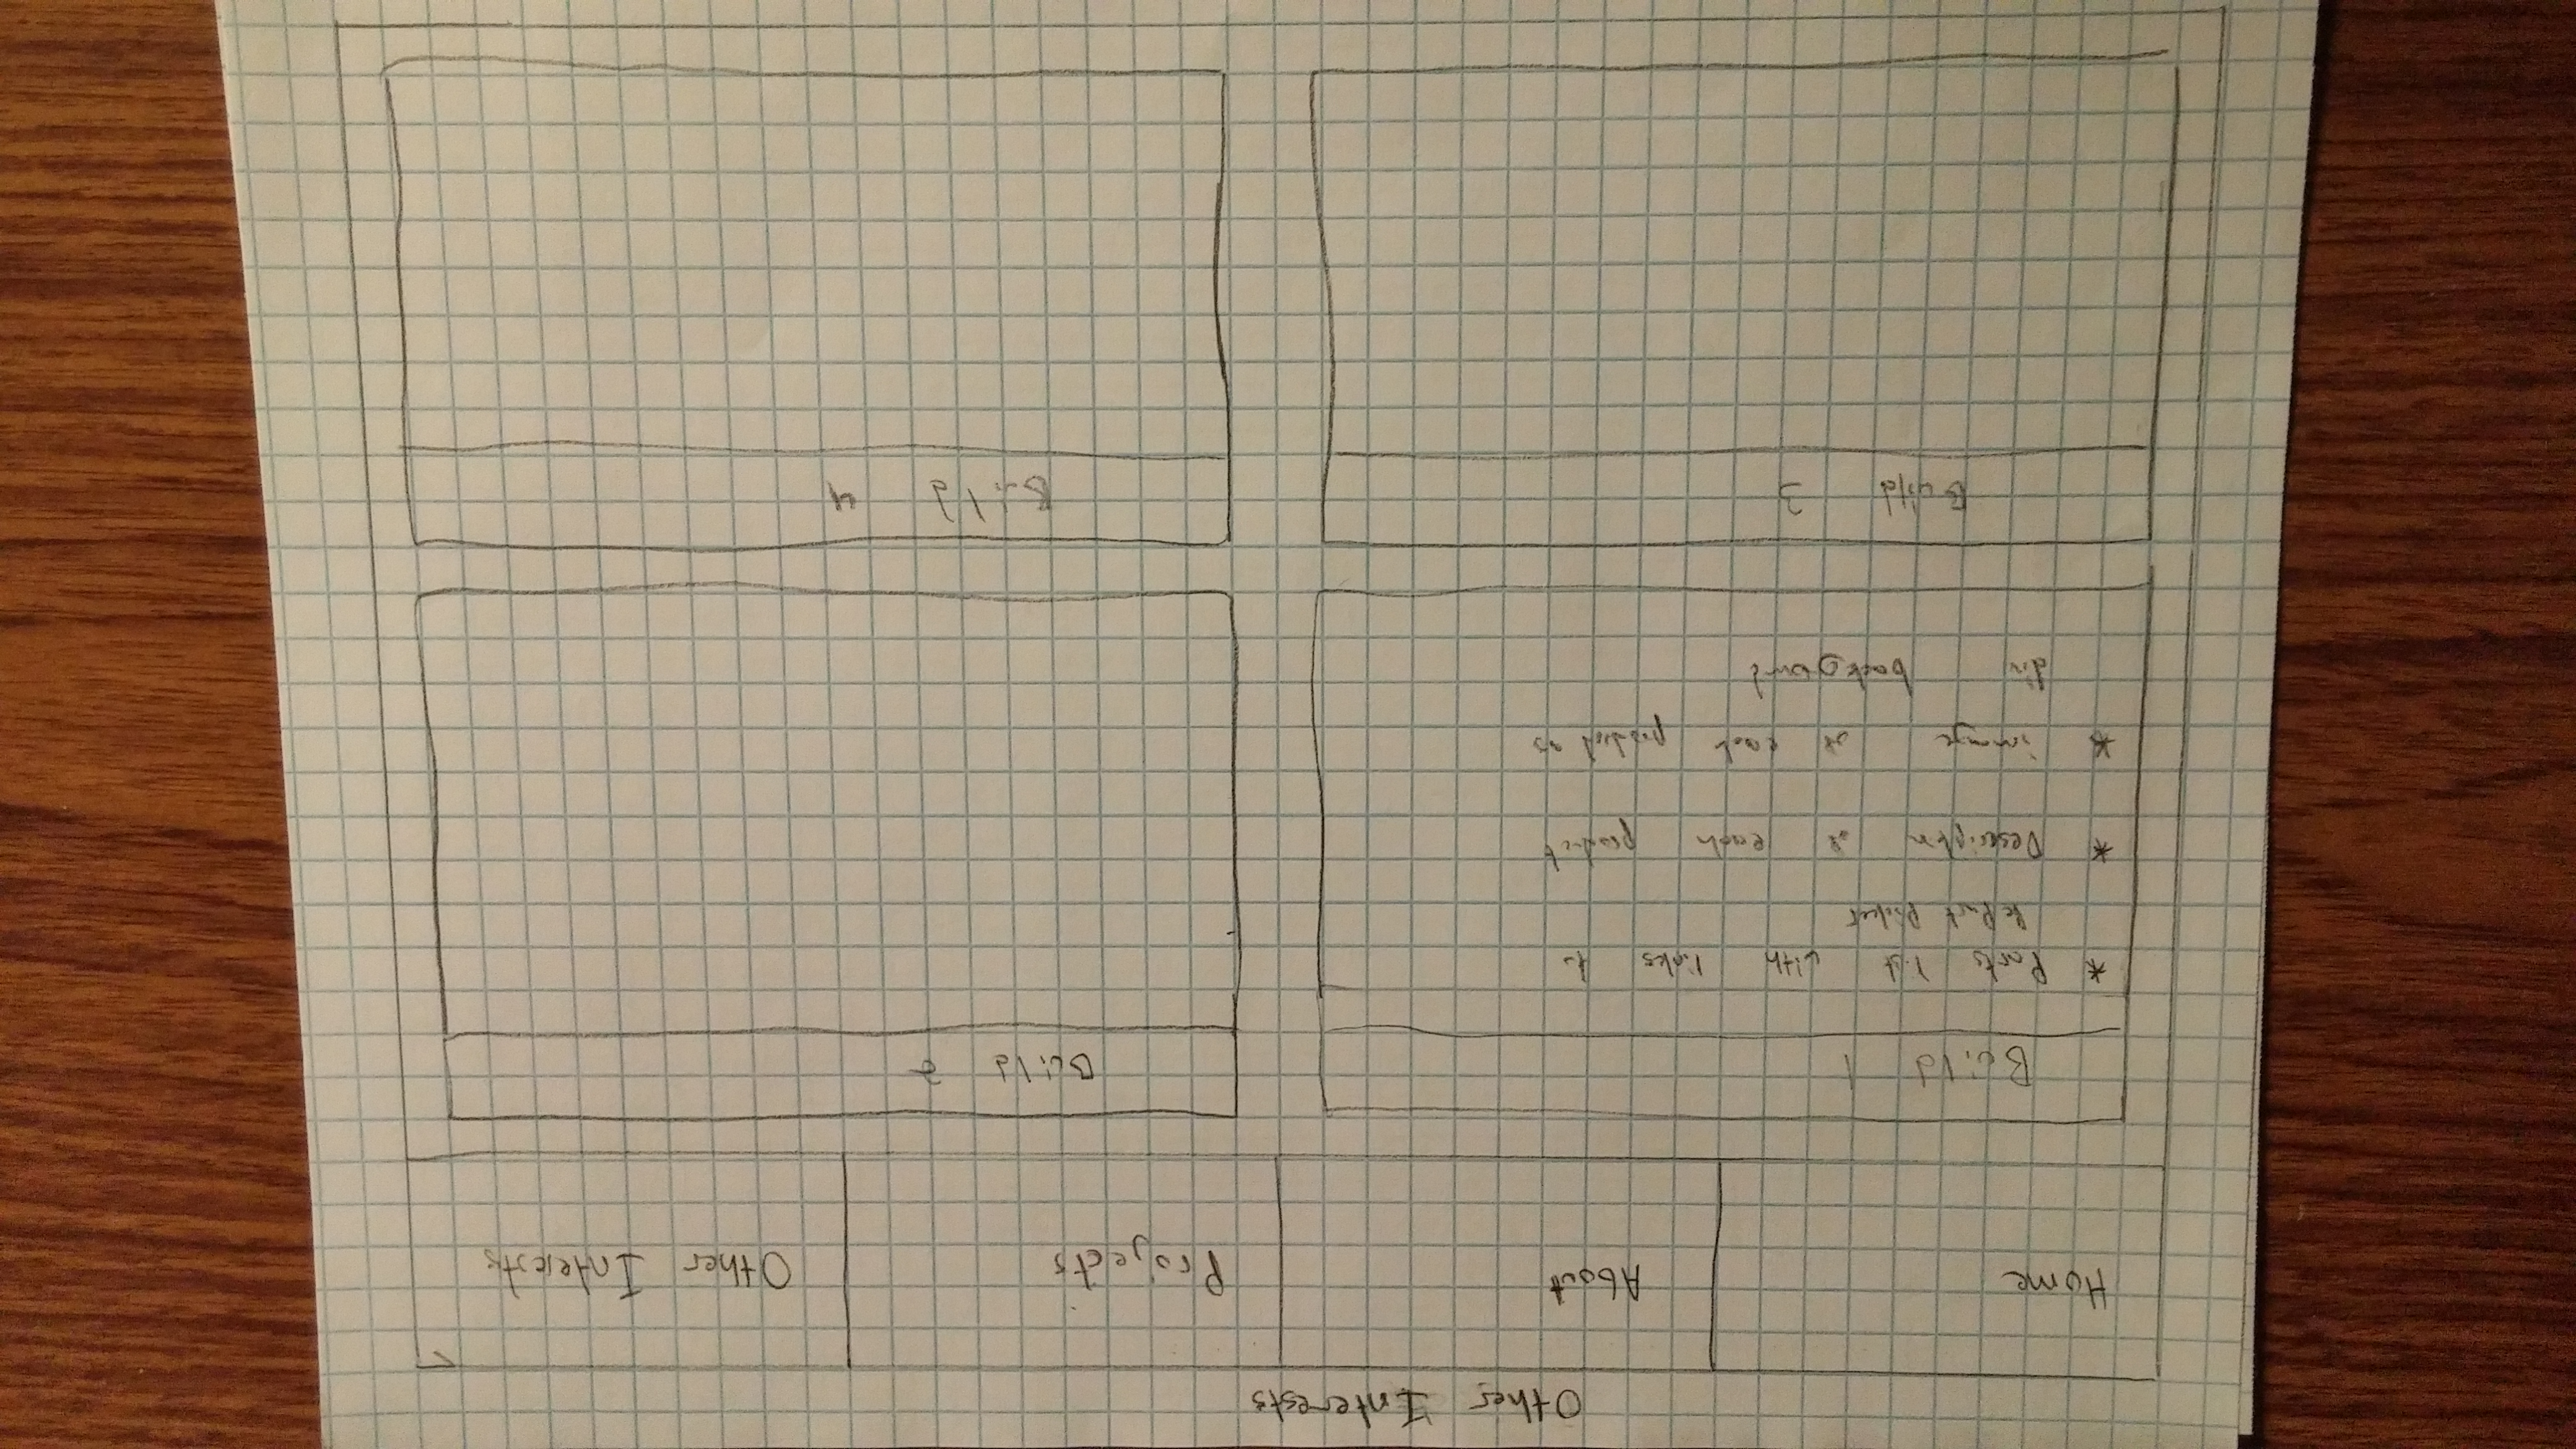 Other Interests
Home About Projects Other Interests
Build 1 Build 2
* Parts list with links to
Pc Part Picker
* Description of each product
* image of each product as
div background
Build 3 Build 4